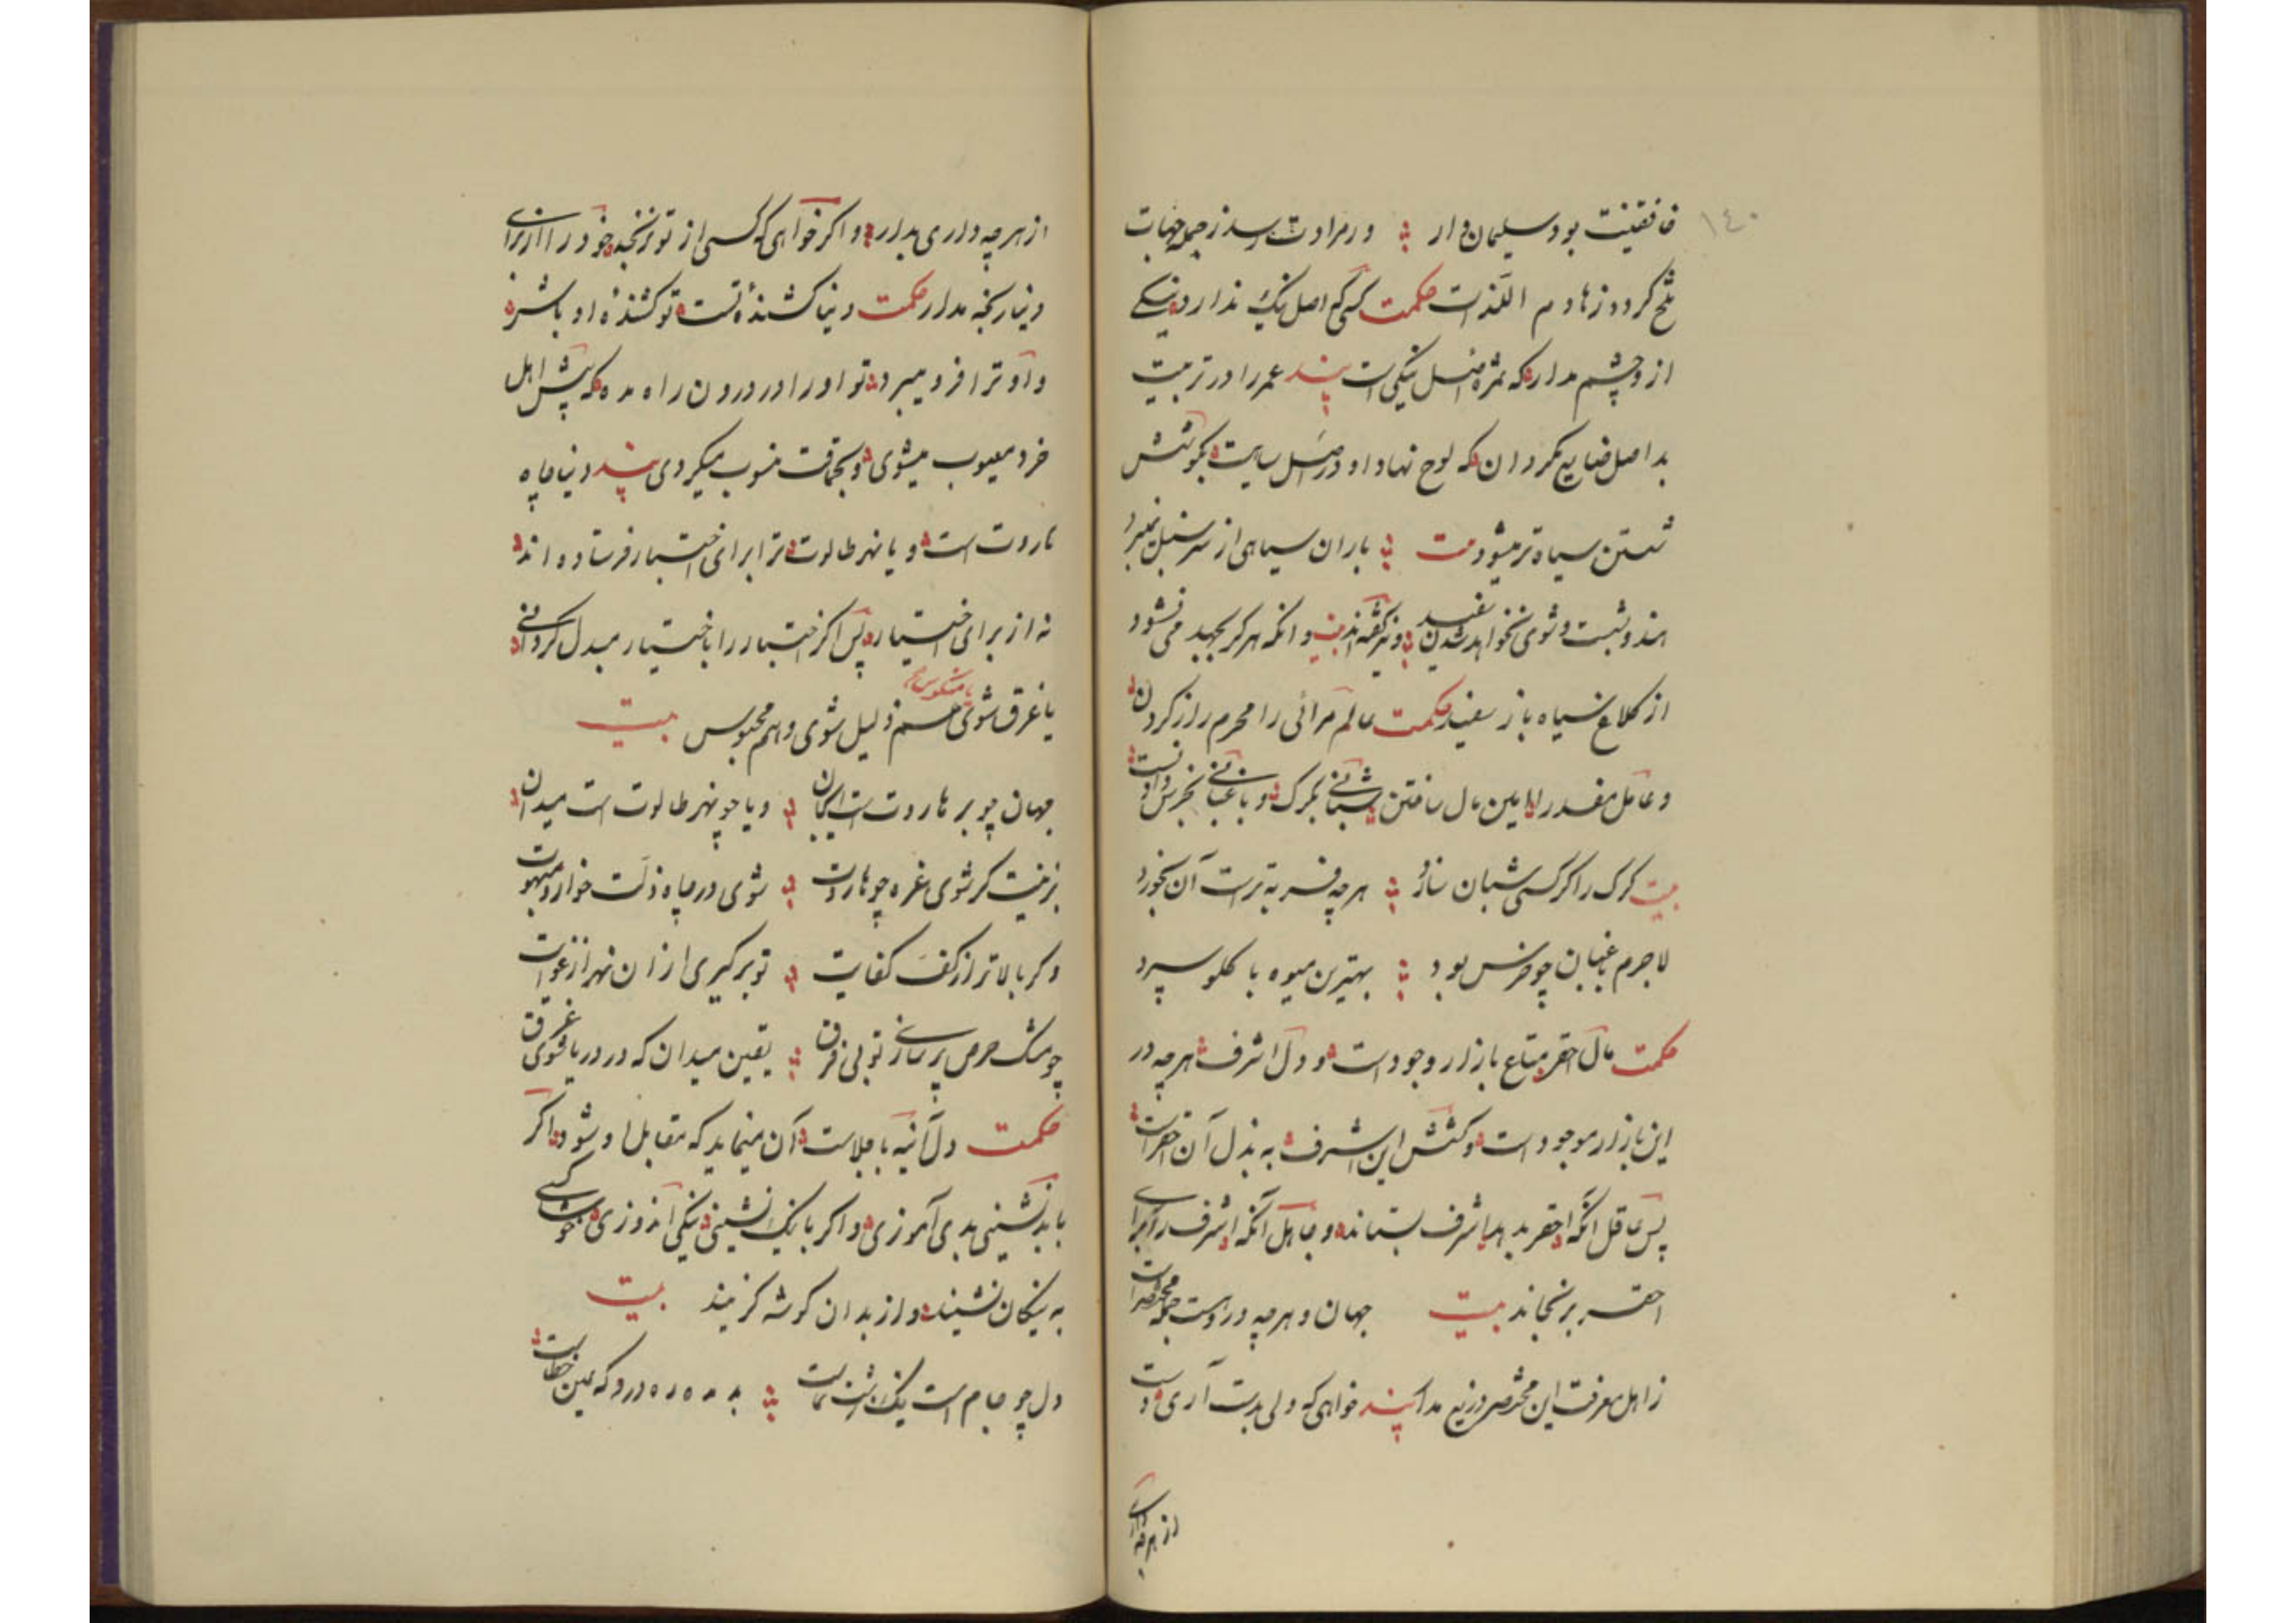 ١٤٠
خافقینت بود سلیمان وار ور مرادت رسد ز جمله جهات
تلخ کردد ز هادم اللذات حکمت کسی که اصل نیک ندارد نیکی
از وچشم مدار که ثمره اصل نیکی است پند عمر را در تربیت
بد اصل ضایع مکردان که لوح نهاد او در اصل سیاهست بکوشش
شستن سیاه تر میشود بیت باران سیاهی از سر سنبل نمیبرد
هندو بشست و شوی نخواهد شدن سفید و نیز کفته اند بیت وانکه هرکز بجهد می نشود
از کلاغ سیاه باز سفید حکمت عالم مرائی را محرم راز کردن
و عامل مفسد را امین مال ساختن شبانی بکرک و باغبانی بخرس دادنست
بیت کرک را کر کسی شبان سازد هرچه فربه ترست آن بخورد
لاجرم باغبان چو خرس بود بهترین میوه با کلو سپرد
حکمت مال احقر متاع بازار وجود است و دل اشرف هرچه در
این بازار موجود است و کشش این اشرف به بذل آن احقر است
پس عاقل آنکه احقر بدهد اشرف بستاند و جاهل آنکه اشرف را برای
احقر برنجاند بیت جهان و هرچه دروست جمله مختصرات
ز اهل معرفت این مختصر دریغ مدار پند خواهی که دلی بدست آری دست
از هرچه داری
از هرچه داری بدار و اکر خواهی که کسی از تو نرنجد خود را از برای
دنیا رنجه مدار حکمت دنیا کشندهٔ تست تو کشندهٔ او باش
و او ترا فرو میبرد تو او را در درون راه مده که پیش اهل
خرد معیوب میشوی و بحماقت منسوب میکردی پند دنیا چاه
هاروت است و یا نهر طالوت ترا برای اختبار فرستاده اند
نه از برای اختیار پس اکر اختبار را باختیار مبدل کردانی
یا غرق شوی یا منکوس هم ذلیل شوی و هم محبوس بیت
جهان چو بر هاروت است ایجان و یا چو نهر طالوت است میدان
بزینت کر شوی غره چو هاروت شوی در چاه ذلت خوار و مبهوت
و کر بالاتر از کف کفایت تو برکیری از ان نهر از غوایت
چو مشک حرص پر سازی تو بی فرق یقین میدان که در دریا شوی غرق
حکمت دل آئینه با جلاست آن مینماید که مقابل او شود اکر
با بد نشینی بدی آموزی و اکر با نیک نشینی نیکی اندوزی خوشا کسی
به نیکان نشیند و از بدان کوشه کزیند بیت
دل چو جام است نیک و زشت نماست بد مده ره درو که عین خطاست